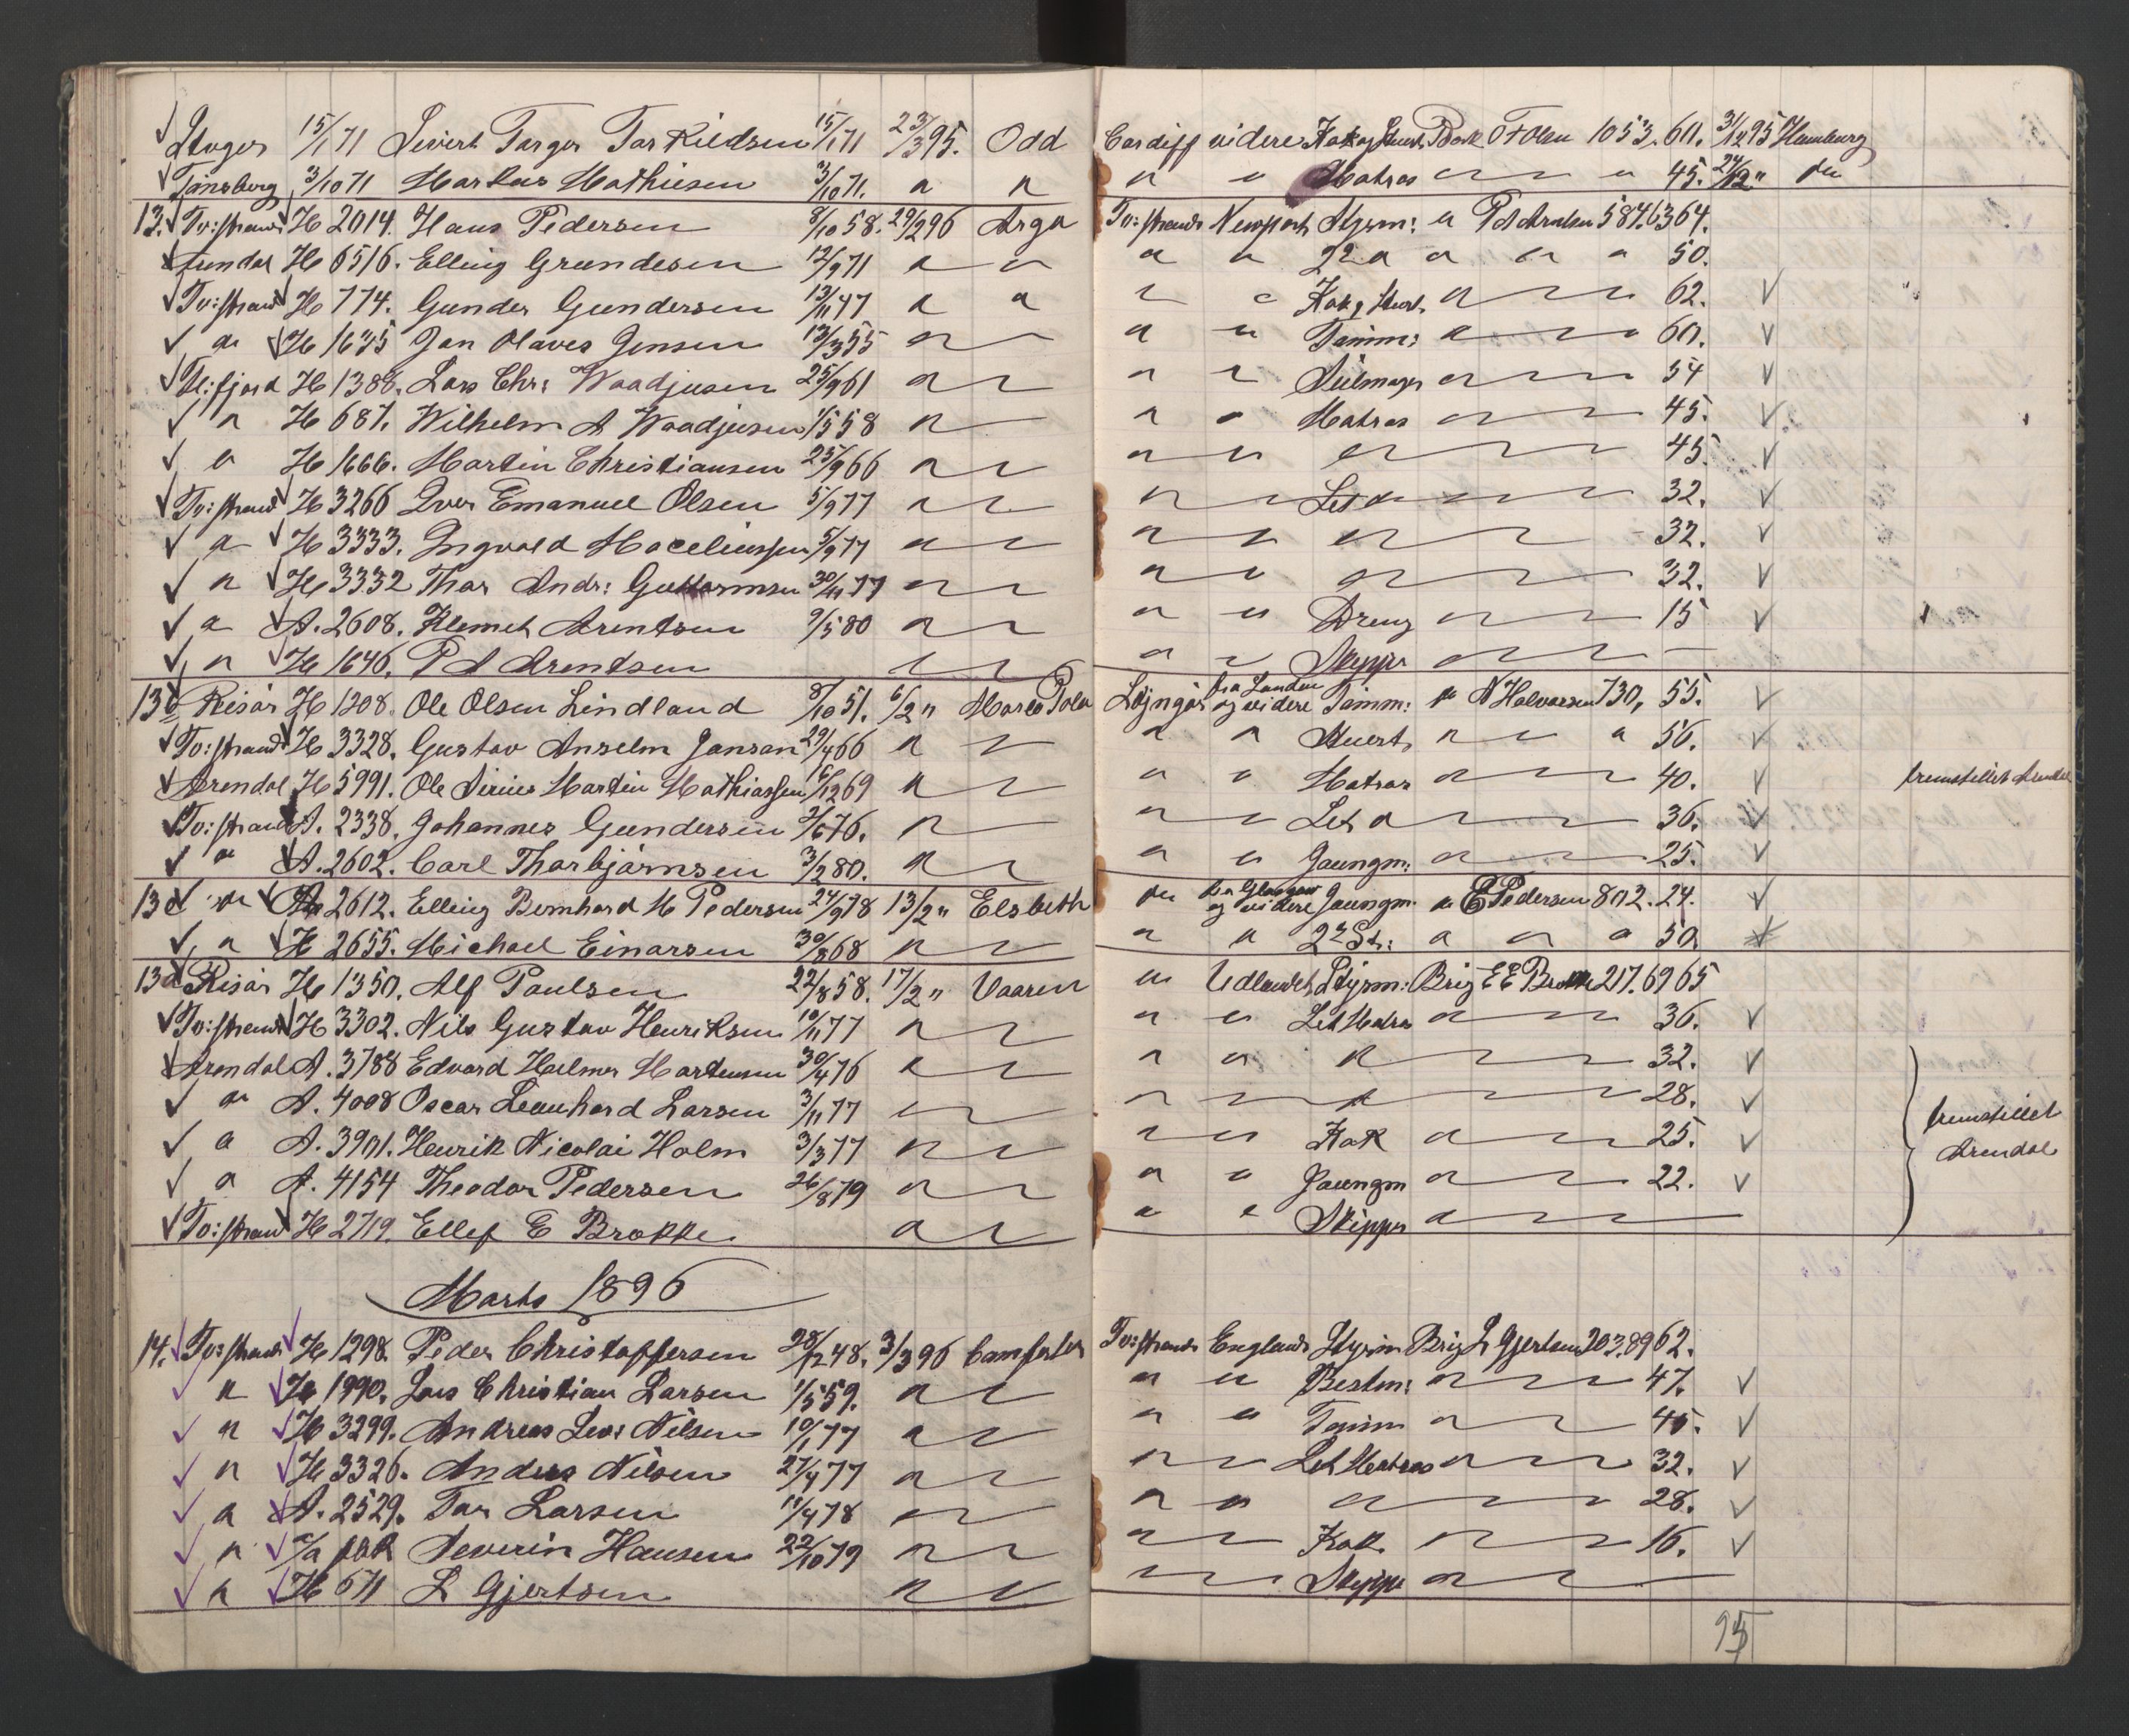 15/1 71 Sivert Torger Torkildsen 15/1 71 23/3 95. Odd Cardiff videre Kok og Stuert Bark O F Olsen 1053. 60. 95 Hamburg
Tönsberg 3/10 71 Markus Mathisen 3/10 71. " " " " Matros " " 45. 27/12 " "
13. Tv:strand H 2014. Hans Pedersen 8/10 58. 29/2 96 Arga Tv:strand Newport Styrm: " P A Arntsen 587.63 64.
Arendal H 6516. Elling Gundersen 12/9 71 " " " " 2n " " " " 50.
Tv:strand H 774. Gunder Gundersen 13/11 47 " " " " Kok & Stuert " 62.
" H 1635 Jan Olaves Jensen 13/3 55 " " " Tömm: " 60.
H 1388. Lars Chr: Waadjusen 25/9 61 " " " Seilmager " 54
" H 687. Wilhelm A Waadjusen 1/5 58 " " " Matros " 45.
" H 1666. Martin Christiansen 25/9 66 " " " " 45.
Tv:strand H 3266 Iver Emanuel Olsen 5/9 77 " " " Let " 32.
" H 3333. Ingvald 5/9 77 " " " " 32.
" H 3332 Thor Andr: Guttormsen 30/11 77 " " " " 32.
" A. 2608. Klemet Arentsen 9/5 80 " " " Dreng " 15
" H 1646. P A Arentsen " " " Skipper " —
13b Risör H 1208. Ole Olsen Lindland 8/10 51. 6/2 " Marco Polo Lyngör fra London og videre Tömm: " N Halvorsen 730, 55.
Tv:strand H 3328. Gustav Anselm Jansen 29/4 66 " " " Stuert " " " 56.
Arendal H 5991. Ole Sirius Martin Mathiassen 6/12 69 " " " Matros " 40. fremstillet Arendal
Tv:strand A. 2338. Johannes Gundersen 2/6 76. " " " Let " 36.
" A. 2602. Carl Thorbjörnsen 3/2 80. " " " Jaungm: " 25.
13c " A 2612. Elling Bernhard M Pedersen 24/9 78 13/2 " Elsbeth " fra Glasgow og videre Jaungm. " E Pedersen 802. 24.
" H 2655. Michael Einarsen 30/8 68 " " " 2n St: " " " 50.
13d Risör H 1350. Alf Paulsen 22/8 58. 17/2 " Vaaren " Udlandet Styrm: Brig E E Brokke 217.69 65
Tv:strand H 3302. Nils Gustav Henriksen 10/11 77 " " " Let Matros " 36.
Arendal A. 3788 Edvard Helmer Mortensen 30/4 76 " " " " 32.
" A. 4008 Oscar Leonhard Larsen 3/11 77 " " " " 28.
" A. 3901. Henrik Nicolai Holm 3/3 77 " " " Kok " 25. fremstillet Arendal
" A. 4154 Theodor Pedersen 26/8 79 " " " Jaungm " 22.
Tv:strand H 2719. Ellef E Brokke " " " Skipper "
Marts 1896
14. Tv:strand H 1298. Peder Christoffersen 28/12 48. 3/3 96 Tv:strand England Styrm Brig L Gjertsen 203.89 62.
" H 1990. Lars Christian Larsen 1/5 59. " " " Bestm: " 47.
" H 3299. Andreas Nilsen 10/1 77 " " " Tömm " 45.
" H 3326. Anders Nilsen 27/4 77 " " " Let Matros " 32.
" A. 2529. Tor Larsen 11/4 78 " " " " 28.
" Severin Hansen 22/10 79 " " " Kok " 16.
" H 671 L Gjertsen " " " Skipper "
95